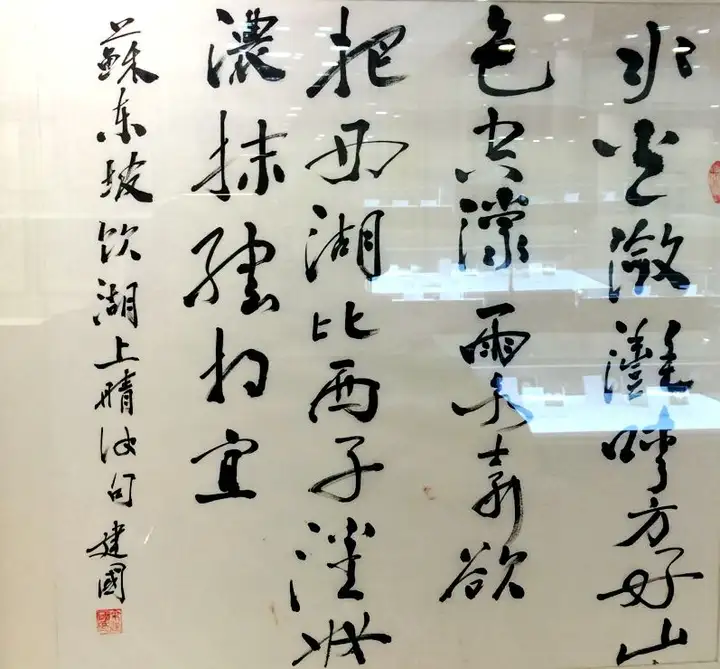 水光瀲灧晴方好山
色空濛雨亦奇欲
把西湖比西子淡妆
濃抹總相宜
蘇东坡饮湖上晴後句 建國